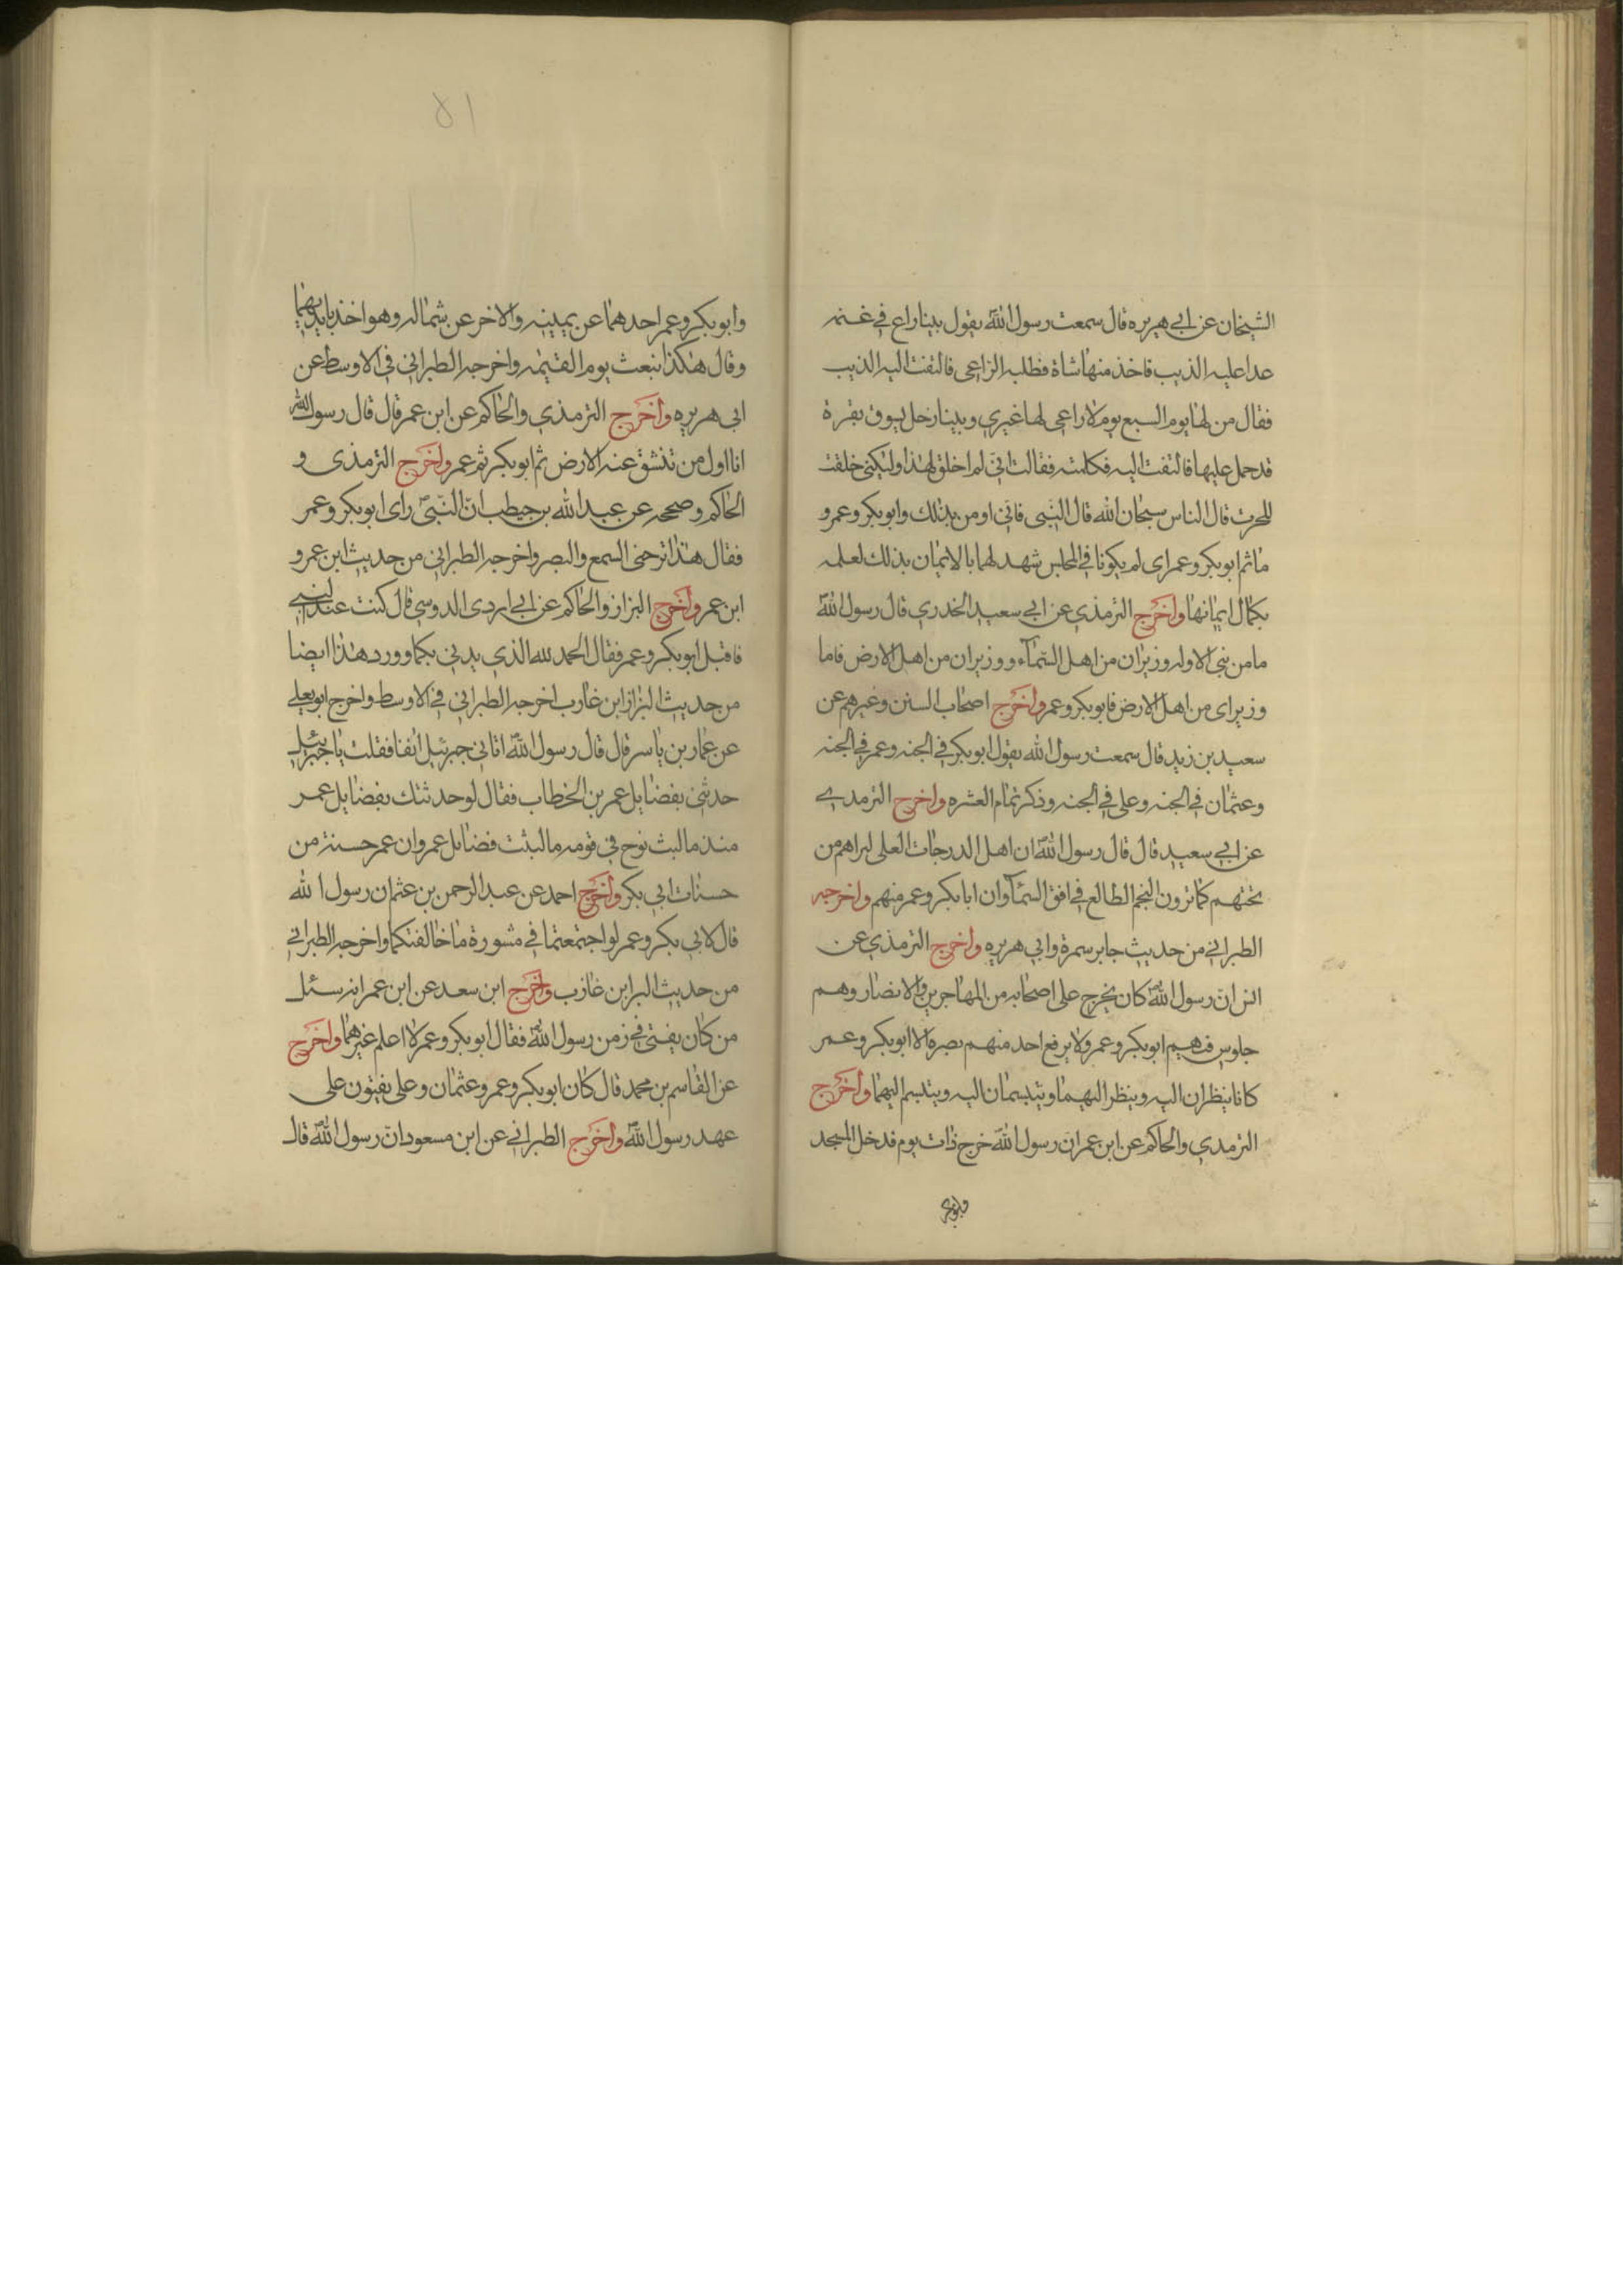 الشيخان عن ابي هريره قال سمعت رسول اللهؐ يقول بينا راع في غنمه
عدا عليه الذيب فاخذ منها شاة فطلبه الراعى فالتفت اليه الذيب
فقال من لها يوم السبع يوم لا راعى لها غيري وبينا رجل يسوق بقرة
قد حمل عليها فالتفت اليه فكلمته فقالت انى لم اخلق لهذا ولكنى خلقت
للحرث قال الناس سبحان الله قال النبى فانى اومن بذلك وابو بكر وعمر و
ما ثم ابو بكر وعمر اى لم يكونا في المجلس شهد لهما بالايمان بذلك لعلمه
بكمال ايمانها واخرج الترمذي عن ابي سعيد الخدري قال رسول اللهؐ
ما من نبى الا وله وزيران من اهل السمآء ووزيران من اهل الارض فاما
وزيراى من اهل الارض فابو بكر وعمر واخرج اصحاب السنن وغيرهم عن
سعيد بن زيد قال سمعت رسول الله يقول ابو بكر في الجنه وعمر في الجنه
وعثمان في الجنه وعلى في الجنه وذكر تمام العشره واخرج الترمدي
عن ابي سعيد قال قال رسول اللهؐ ان اهل الدرجات العلى ليراهم من
تحتهم كما ترون النجم الطالع في افق السمآ وان ابا بكر وعمر منهم واخرجه
الطبراني من حديث جابر سمرة وابي هريره واخرج الترمذي عن
انس ان رسول اللهؐ كان يخرج على اصحابه من المهاجرين والانصار وهم
جلوس فيهم ابو بكر وعمر ولا يرفع احد منهم بصره الا ابو بكر وعمر
كانا ينظران اليه وينظر اليهما ويتبسمان اليه ويتبسم اليهما واخرج
الترمدي والحاكم عن ابن عمر ان رسول اللهؐ خرج ذات يوم فدخل المسجد
وابو بكر
٥١
وابو بكر وعمر احدهما عن يمينه والاخر عن شماله وهو اخذ بايديهما
وقال هكذا نبعث يوم القيٰمه واخرجه الطبراني في الاوسط عن
ابى هريره واخرج الترمذي والحاكم عن ابن عمر قال قال رسول اللهؐ
انا اول من تنشق عنه الارض ثم ابو بكر ثم عمر واخرج الترمذى و
الحاكم وصححه عن عبد الله بن حيطب انّ النّبىؐ راى ابو بكر وعمر
فقال هذا ترحنى السمع والبصر واخرجه الطبراني من حديث ابن عمر و
ابن عمر واخرج البزاز والحاكم عن ابي اردى الدوسي قال كنت عند النبي
فاقبل ابو بكر وعمر فقال الحمد لله الذي يدنى بكما وورد هذا ايضا
من حديث البزاز ابن غارب اخرجه الطبراني في الاوسط واخرج ابو يعلي
عن عمار بن ياسر قال قال رسول اللهؐ اتاني جبرئيل انفا فقلت يا جبرئيل
حدثنى بفضايل عمر بن الخطاب فقال لو حدثتك بفضايل عمر
منذ ما لبث نوح في قومه ما لبثت فضائل عمر وان عمر حسنة من
حسنات ابي بكر واخرج احمد عن عبد الرحمن بن عثمان رسول الله
قال لابي بكر وعمر لو اجتمعتما في مشورة ما خالفتكما واخرجه الطبراني
من حديث البرا بن غازب واخرج ابن سعد عن ابن عمر انه سئل
من كان يفتى في زمن رسول اللهؐ فقال ابو بكر وعمر لا اعلم غيرهما واخرج
عن القاسم بن محمد قال كان ابو بكر وعمر وعثمان وعلى يفتون على
عهد رسول اللهؐ واخرج الطبراني عن ابن مسعود انّ رسول اللهؐ قال